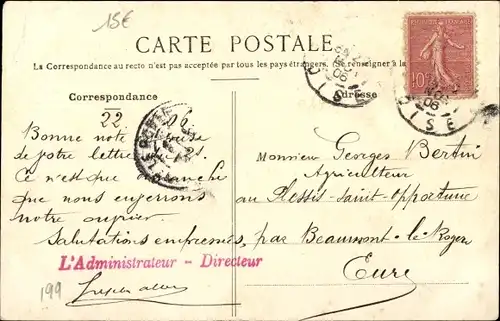 15€
CARTE POSTALE
La Correspondance au recto n'est pas acceptée par tous les pays étrangers. (Se renseigner à la
Correspondance
Adresse
22 06
Bonne note
de votre lettre
Ce n'est que dimanche
que nous enverrons
notre ouvrier.
Salutations empressées,
L'Administrateur - Directeur
199
Monsieur Georges Bertin
Agriculteur
au Plessis-Saint-Opportune
par Beaumont-le-Roger
Eure
10
OISE
06